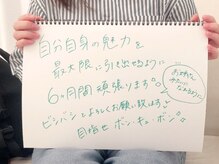 自分自身の魅力を
最大限に引き出せるように
6ヶ月間頑張ります°。
ビシバシよろしくお願い致します
目指せ ボン・キュ・ボン°。